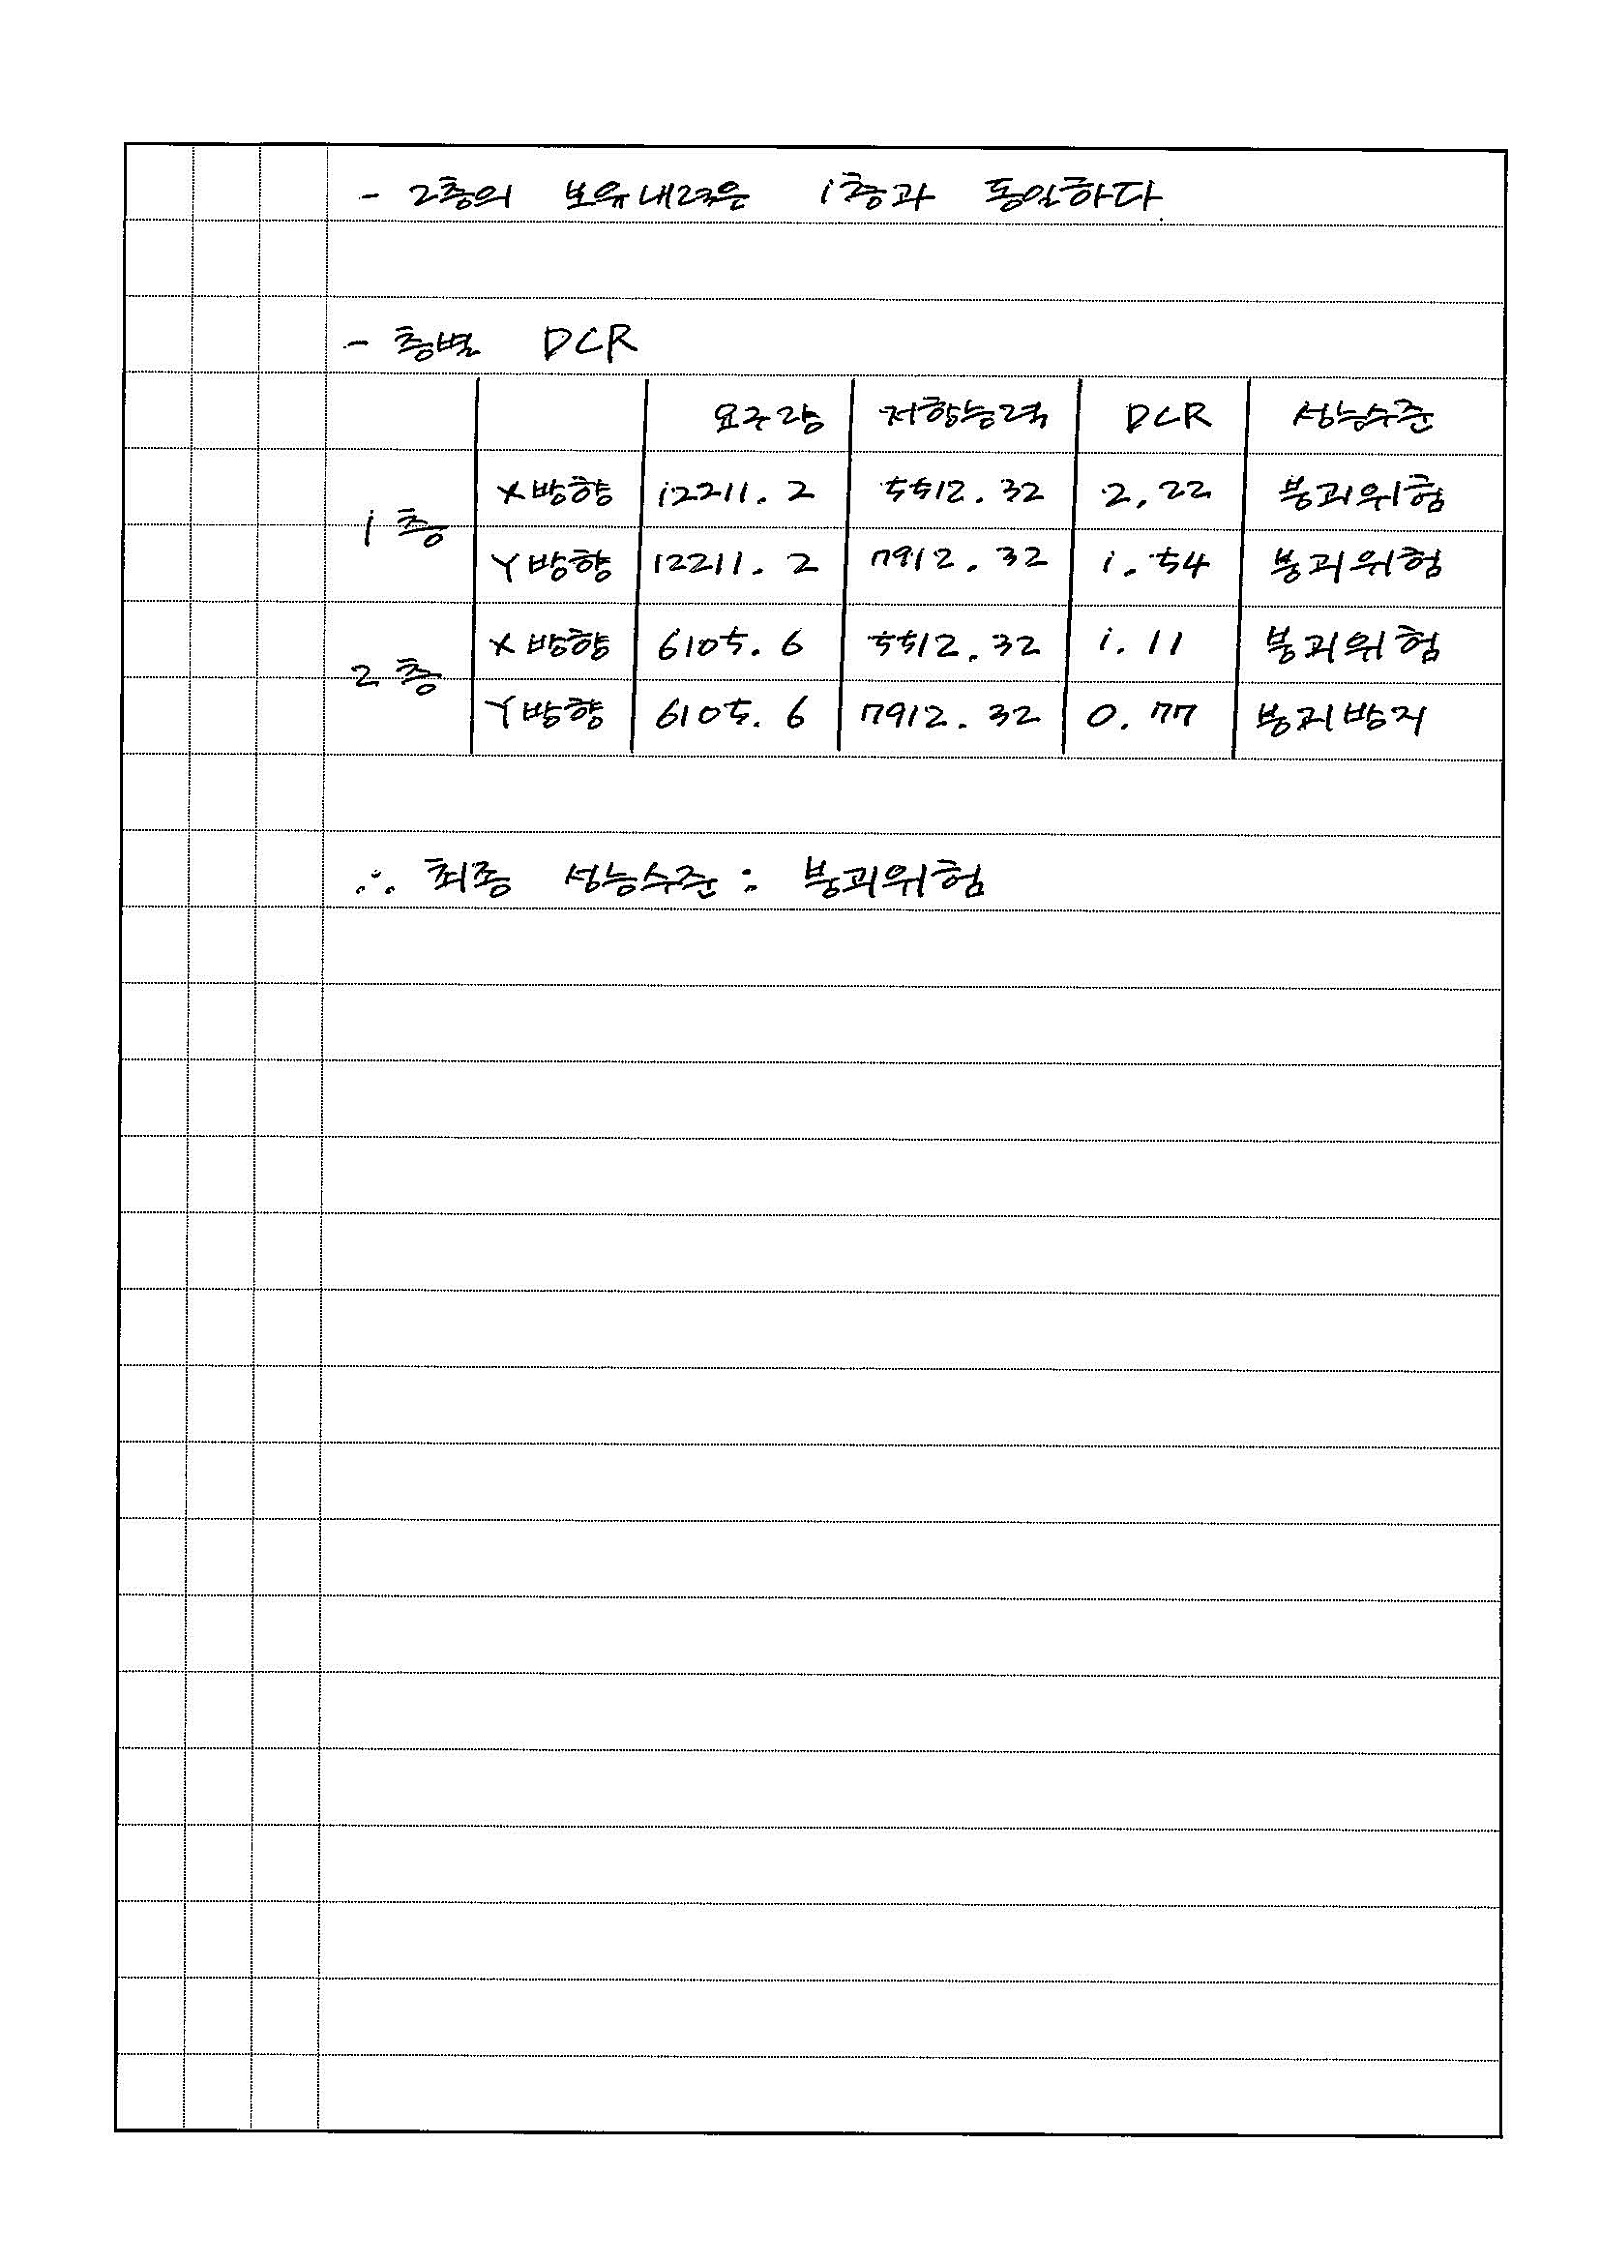 - 2층의 보유내력은 1층과 동일하다.
- 층별 DCR
요구량 저항능력 DCR 성능수준
1층 X방향 12211.2 5512.32 2.22 붕괴위험
Y방향 12211.2 7912.32 1.54 붕괴위험
2층 X방향 6105.6 5512.32 1.11 붕괴위험
Y방향 6105.6 7912.32 0.77 붕괴방지
∴ 최종 성능수준 : 붕괴위험